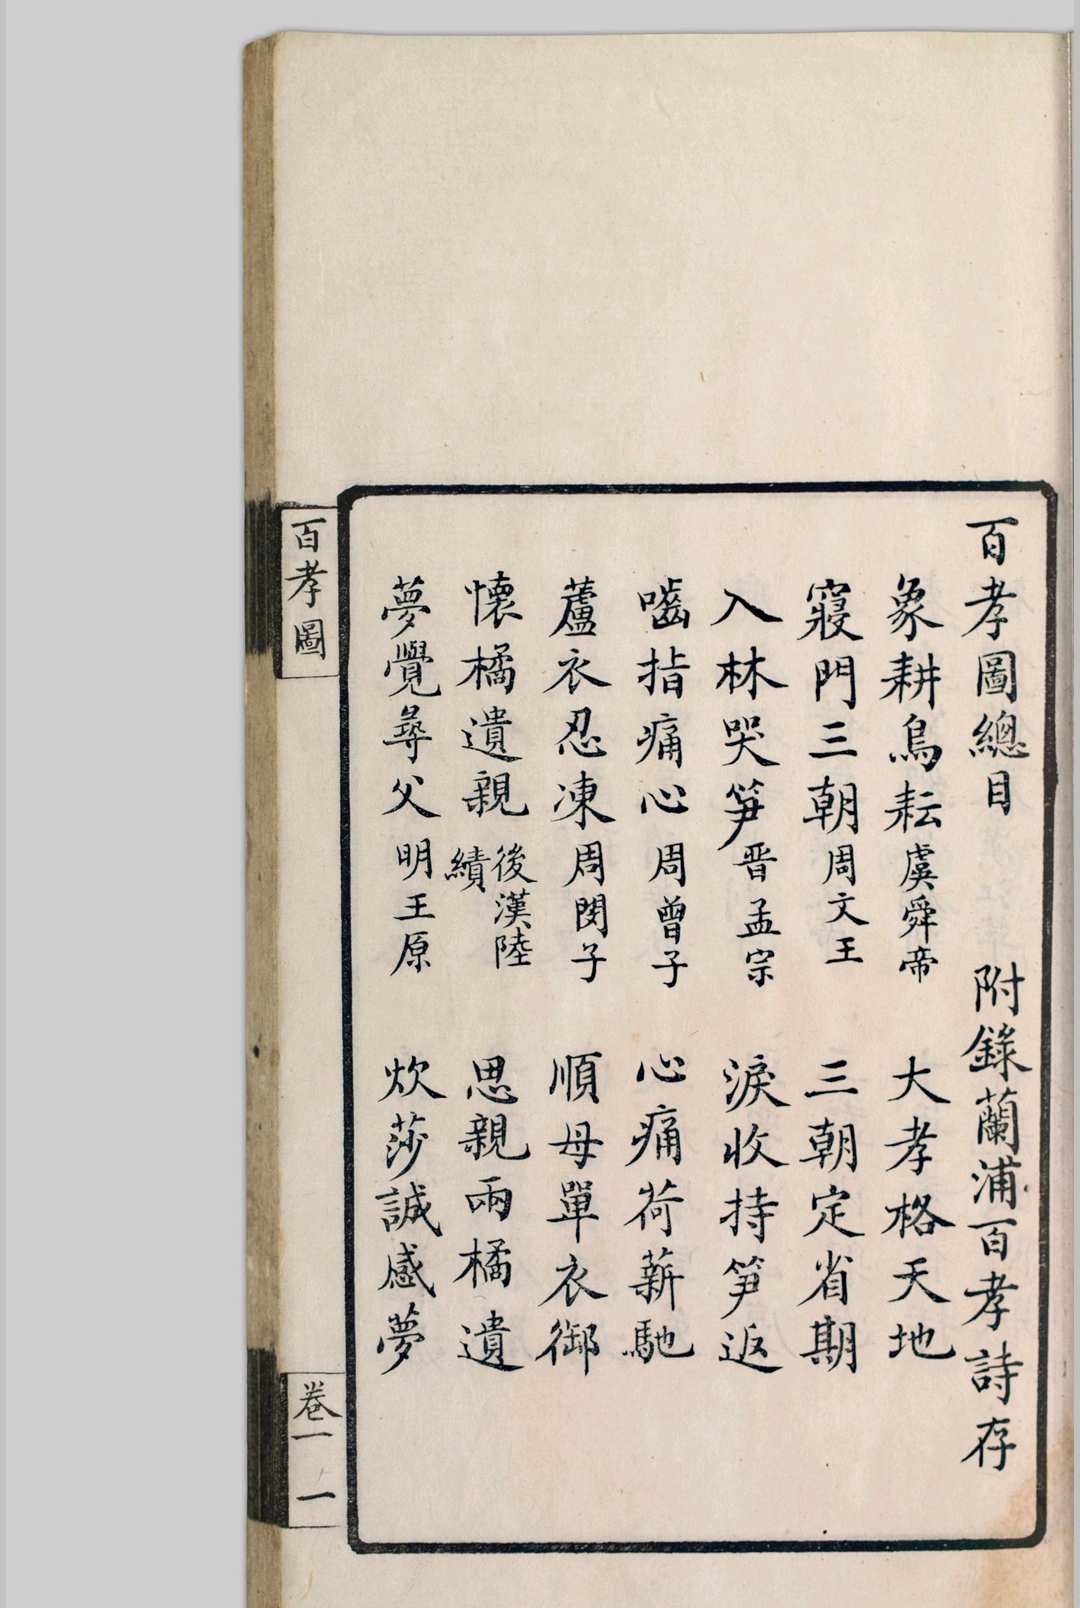 百孝圖總目　附錄蘭浦百孝詩存
象耕鳥耘虞舜帝　大孝格天地
寢門三朝周文王　三朝定省期
入林哭笋晋孟宗　淚收持笋返
嚙指痛心周曾子　心痛荷薪馳
蘆衣忍凍周閔子　順母單衣御
懷橘遺親後漢陸績　思親兩橘遺
夢覺尋父明王原　炊莎誠感夢
百孝圖
卷一　一